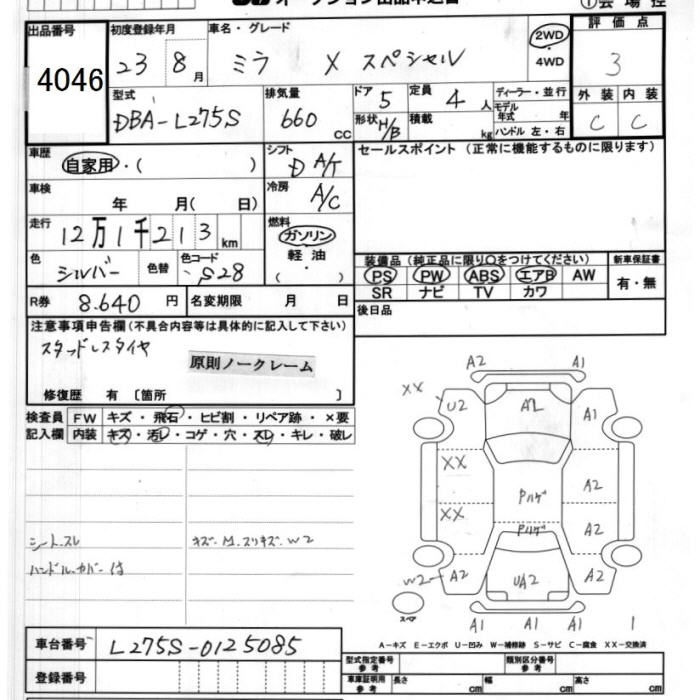 オークション出品申込書
① 会場控
出品番号 初度登録年月 車名・グレード 評価点
4046 23 8月 ミラ X スペシャル 2WD ・ 4WD 3
型式 排気量 ドア 5 定員 4人 ディーラー・並行 外装 内装
DBA-L275S 660 cc 形状 H/B 積載 kg モデル年式 年 C C
ハンドル 左・右
車歴 シフト セールスポイント (正常に機能するものに限ります)
自家用・( ) D A/T
車検 年 月( 日) 冷房 A/C
走行 燃料
12万1千213km ガソリン
色 色替 色コード 軽油・
シルバー S28 ( )
装備品 (純正品に限り○をつけてください) 新車保証書
PS PW ABS エアB AW 有・無
SR ナビ TV カワ
R券 8.640 円 名変期限 月 日 後日品
注意事項申告欄(不具合内容等は具体的に記入して下さい)
スタッドレスタイヤ
原則ノークレーム
修復歴 有 〔箇所 〕
検査員 FW キズ・飛石・ヒビ割・リペア跡・×要
記入欄 内装 キズ・汚レ・コゲ・穴・スレ・キレ・破レ
シートスレ キズ.M.スリキズ.W2
ハンドルカバー付
A2 A1
XX U2 A1
XX A2
Pハゲ
XX Pハゲ A2
W2 A2 UA2 A2
スペア A1 A1 A1 1
A-キズ E-エクボ U-凹み W-補修跡 S-サビ C-腐食 XX-交換済
車台番号 L275S-0125085
登録番号
型式指定番号 参考 類別区分番号 参考
車庫証明用 参考 長さ cm 幅 cm 高さ cm